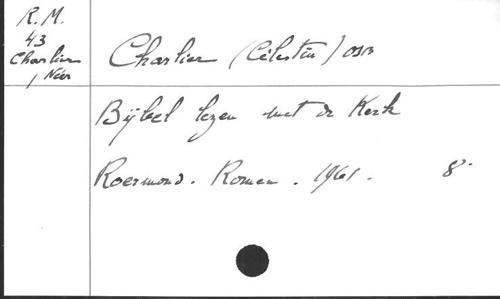 R.M.
43
Charlier
, Néer
Charlier (Célestin) OSB
Bijbel lezen met de Kerk
Roermond. Romen. 1961. 8°